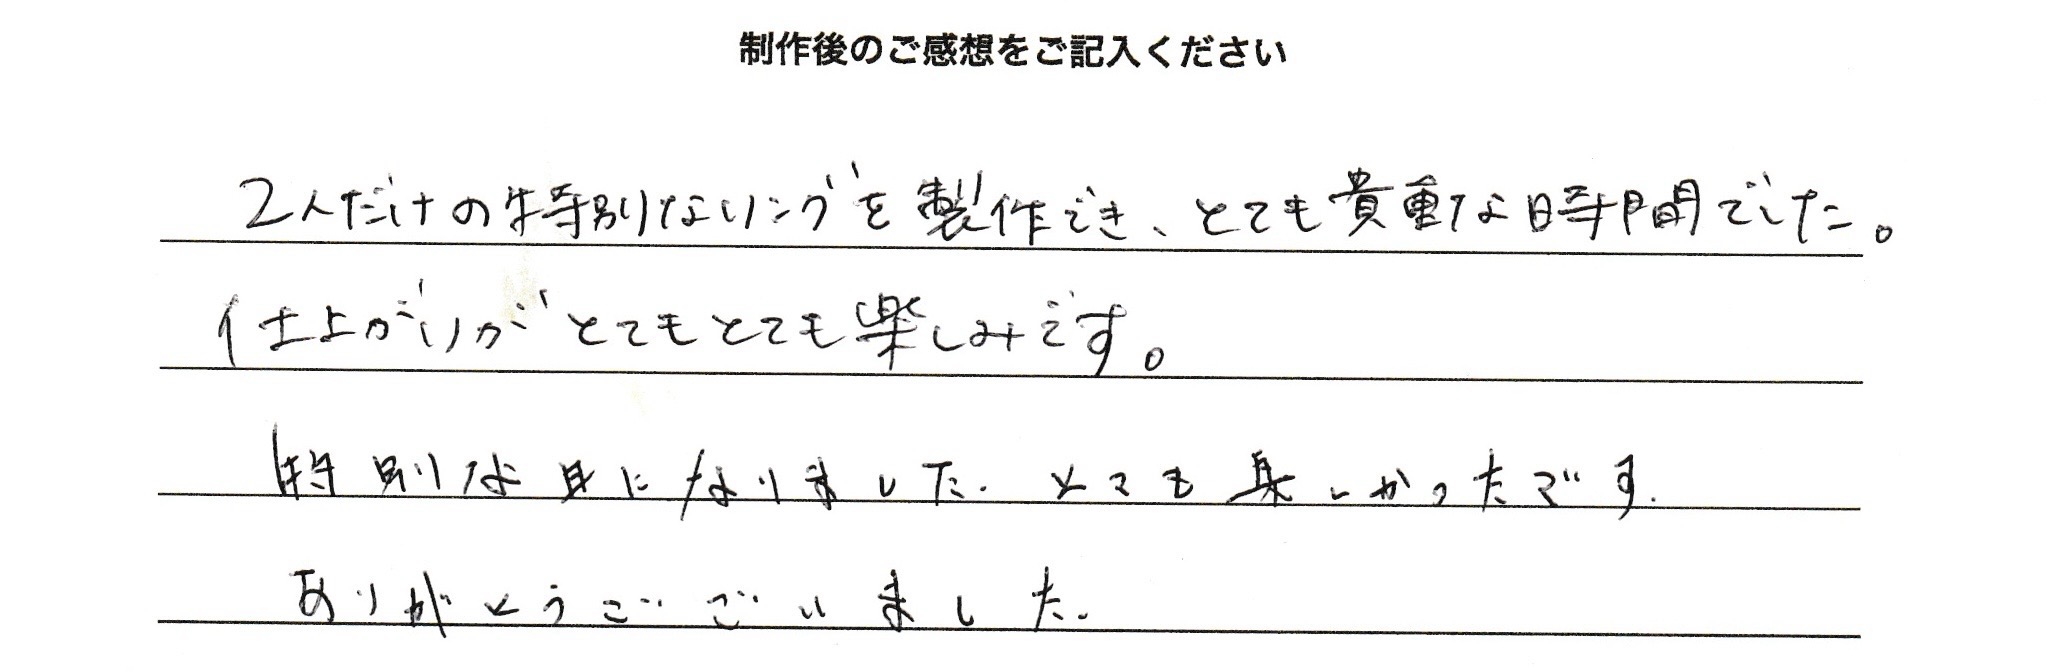 制作後のご感想をご記入ください
2人だけの特別なリングを製作でき、とても貴重な時間でした。
仕上がりがとてもとても楽しみです。
特別な日になりました。とても楽しかったです。
ありがとうございました。